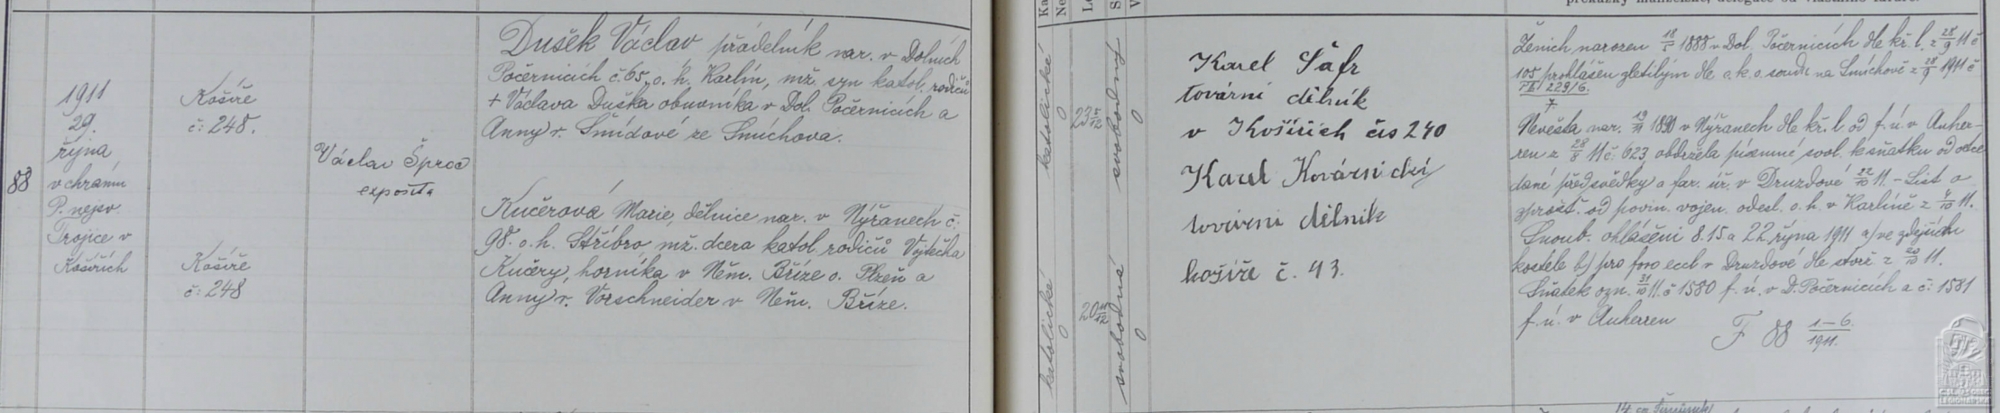 88
1911
29.
října
v chrámu
P. nejsv.
Trojice v
Košířích
Košíře
č: 248.
Košíře
č: 248
Václav Šproc
exposita
Dušek Václav přádelník nar. v Dolních
Počernicích č. 65, o. h. Karlín, mž. syn katol. rodičů
+ Václava Duška obuvníka v Dol. Počernicích a
Anny r. Šmídové ze Smíchova.
Kučerová Marie, dělnice nar. v Nýřanech č.
98. o. h. Stříbro, mž. dcera katol. rodičů Vojtěcha
Kučery, horníka v Něm. Bříze o. Plzeň a
Anny r. Vorschneider v Něm. Bříze.
katolické
0
23 5/12
svobodný
0
katolické
0
20 11/12
svobodná
0
Karel Šafr
tovární dělník
v Košířích čís 240
Karel
tovární dělník
košíře č. 43.
Ženich narozen 18/5 1888 v Dol. Počernicích dle kř. l. z 28/9 11 č
105 prohlášen zletilým dle a. k. o. soudu na Smíchově z 28/9 1911 č
229/6.
7
Nevěsta nar. 1890 v Nýřanech dle kř. l. od f. ú. v Auher-
ren z 28/8 11 č: 623, obdržela písemné svol. k sňatku od odce
dané před svědky a far. úř. v Druzdové 22/10 11. – List o
zprošt. od povin. vojen. odesl. o. h. v Karlíně z 11.
Snoub. ohlášeni 8. 15. a 22. října 1911 a) ve zdejším
kostele b) pro foro eccl. v Druzdové dle z 11.
Sňatek ozn. 31/10 11. č 1580 f. ú. v D. Počernicích a č: 1581
f. ú. v Auherren
F 88 1–6./1911.